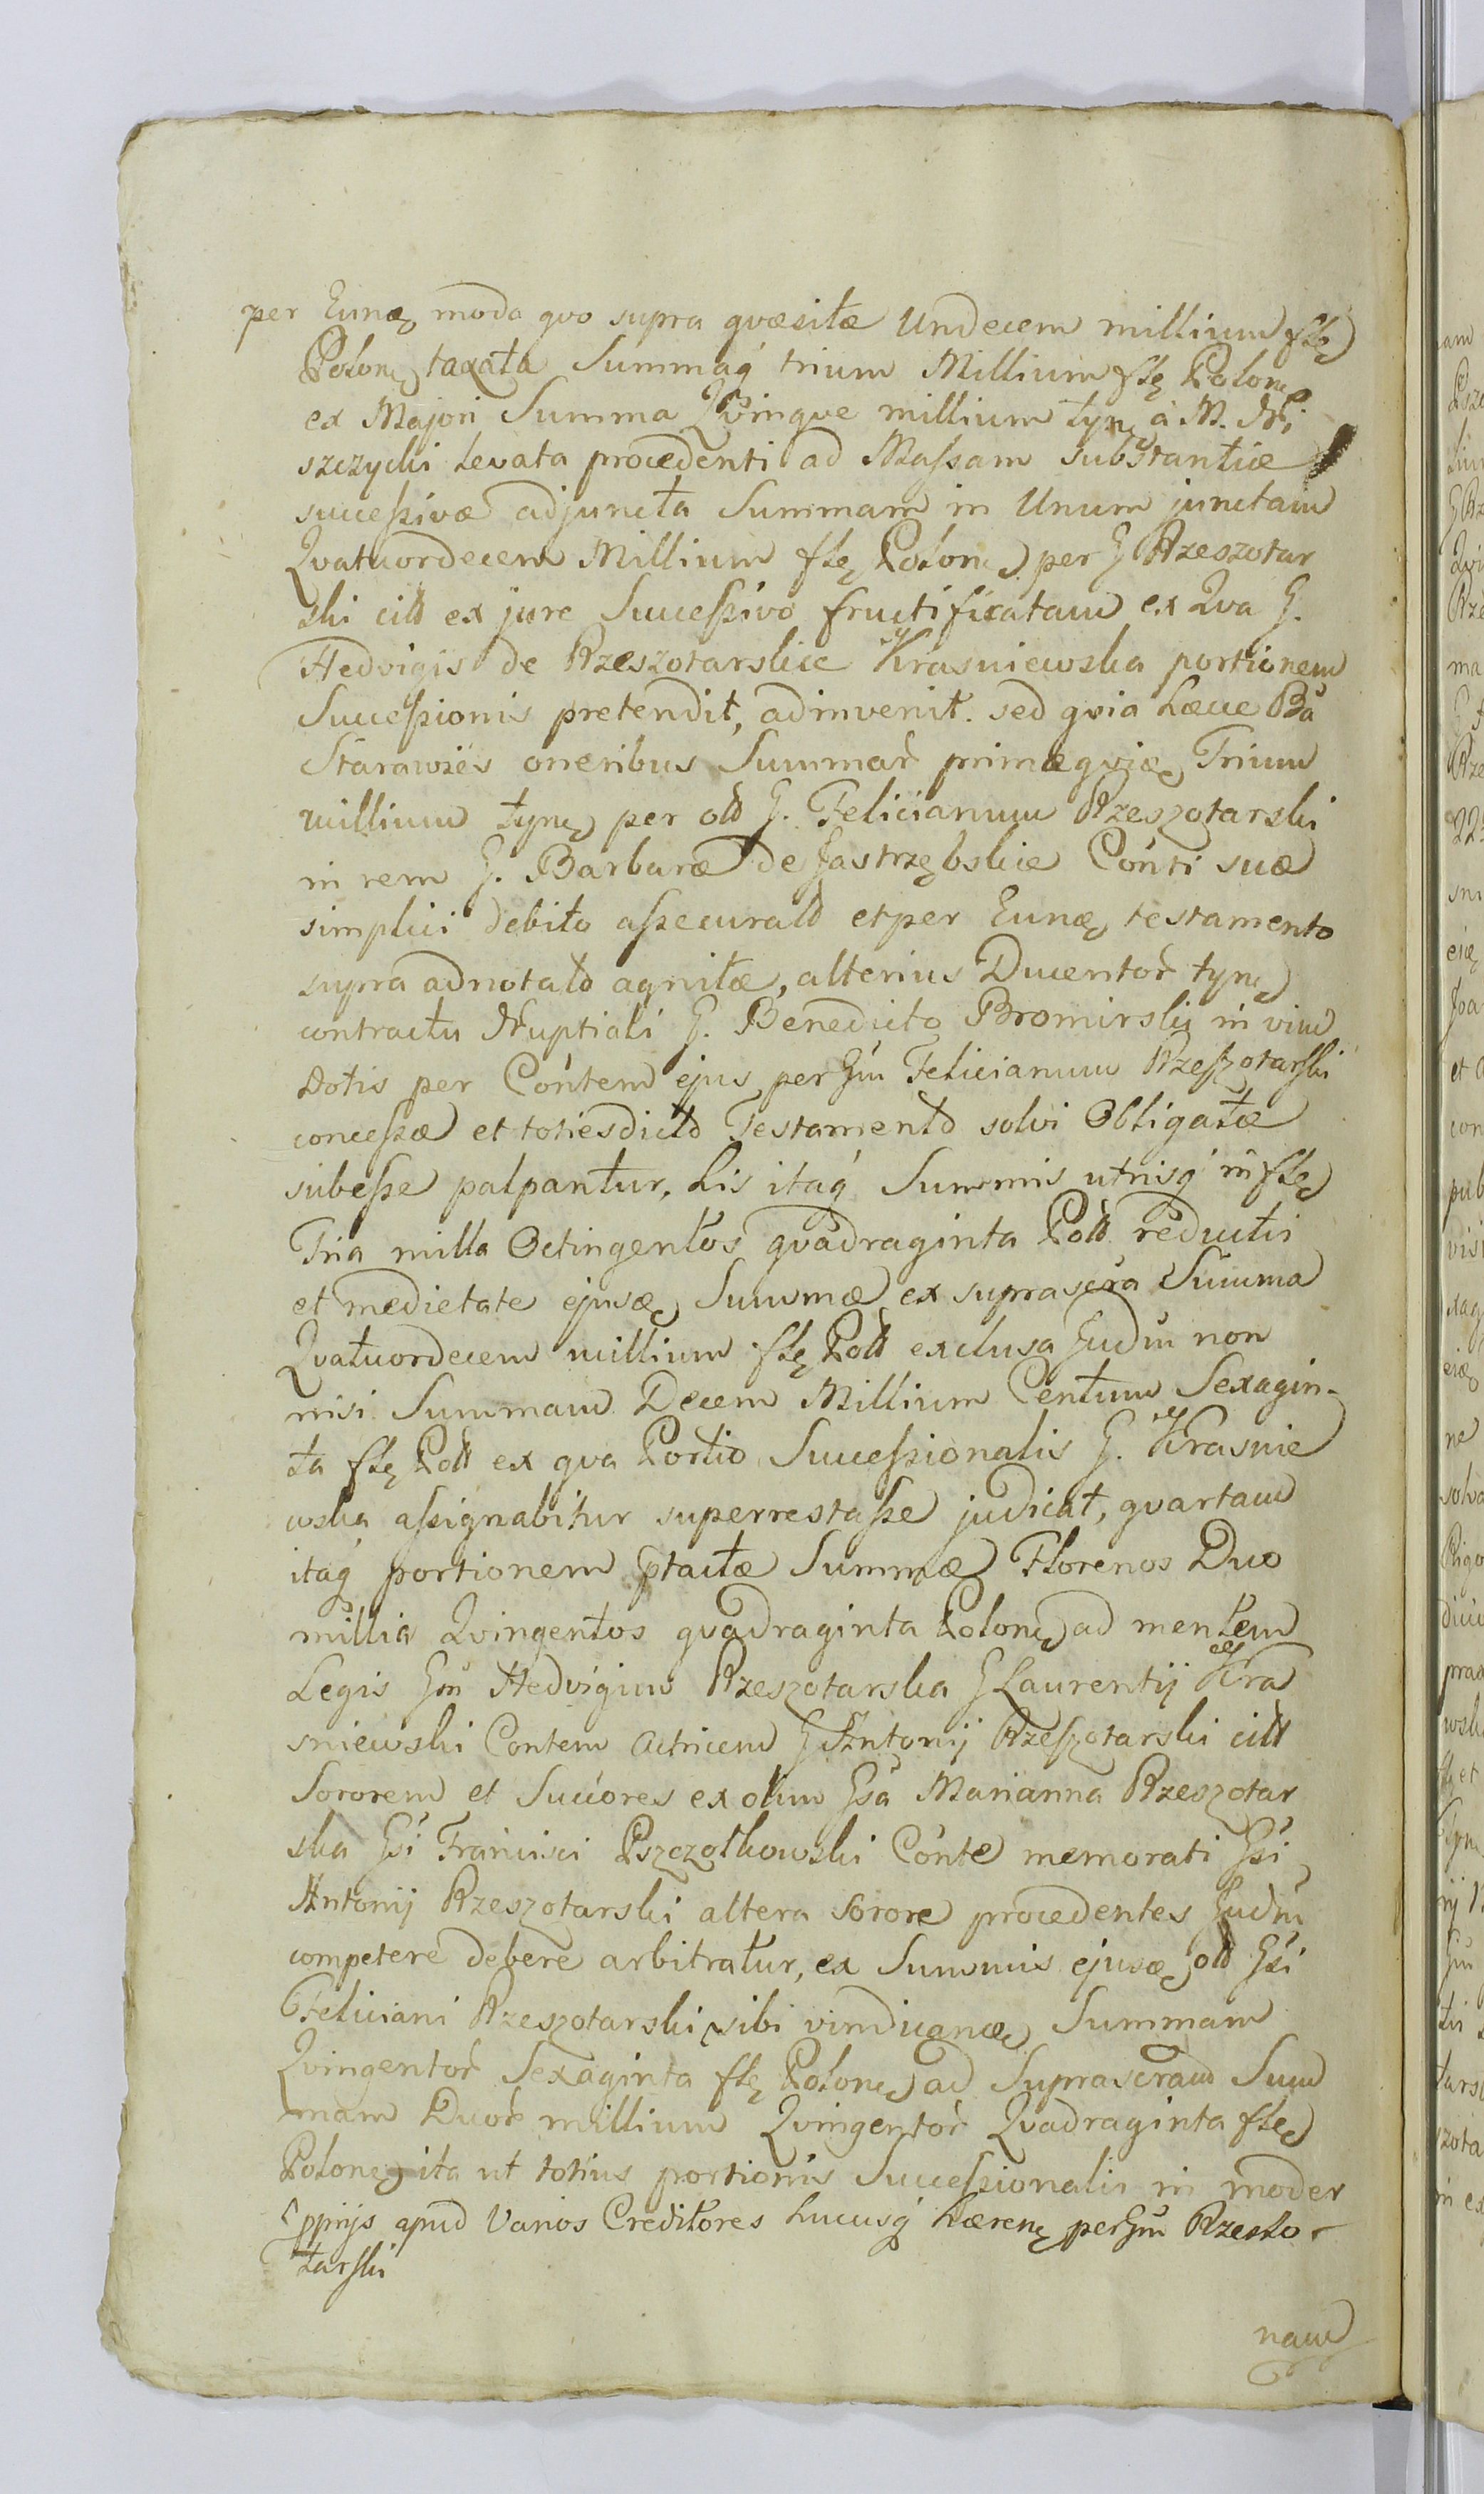 per Eunđ modo qvo supra qvæsitæ Undecem millium flę
Polonę taxata Summaq́ trium Millium flę Polonę
ex Majori Summa Qvinque millium tynę à M. Ni
szczycki levata procedenti ad Maſsam substantiæ
succeſsivæ adjuncta Summam in Unum junctam
Qvatuordecem Millium flę Polonę per G Rzeszotar
ski citt ex jure Succeſsivo fructificatam ex Qva G.
Hedvigis de Rzeszotarskie Krasniewska portionem
Succeſsionis pretendit, adinvenit. sed qvia hæcce Bã
Starawieś oneribus Summař primæqviđ Trium
millium tynę per ott G. Felicianum Rzeszotarski
in rem G. Barbaræ de Jastrzębskie Cónti suæ
simplici debito aſsecuratt et per Eunđ testamento
supra adnotatt agnitæ, alterius Ducentoř tynę
contractu Nuptiali G. Benedicto Bromirski in vim
Dotis per Cóntem ejus per Gm̃ Felicianum Rzeſzotarſki
conceſsæ et totiesdictt Testamentt solvi Obligatæ
subeſse palpantur, his itaq́ Summis utrisq́ in flę
Tria milla Octingentos qvadraginta Pott reductis
et medietate ejusđ Summæ ex suprascra Summa
Qvatuordecem millium flę Pott exclusa Judm̃ non
nisi Summam Decem Millium Centum Sexagin-
ta flę Pott ex qva Portio Succeſsionalis G. Krasnie
wska aſsignabitur superrestaſse judicat, qvartam
itaq́ portionem ptactæ Summæ Florenos Duo
millia Qvingentos qvadraginta Polonę ad mentem
Legis Gm̃ Hedvigim Rzeszotarska G Laurentij Kra
sniewski Contem Actricem G Antonij Rzeſzotarski citt
Sororem et Succóres ex olim Gsa Marianna Rzeszotar
ska Gsi Francisci Pszczołkowski Cónte memorati Gsi
Antonij Rzeszotarski altera Sorore procedentes Judm̃
competere debere arbitratur, ex Summis ejusđ ott Gsi
Feliciani Rzeszotarski sibi vindicanđ Summam
Qvingentoř Sexaginta flę Polonę ad Suprascram Sum
mam Duoř millium Qvingentoř Qvadraginta flę
Polonę ita ut totius portionis Succeſsionalis in moder
ppriјs apud Varios Creditores hucusq́ hærenę per Gm̃ Rzeszo-
tarſki
nam